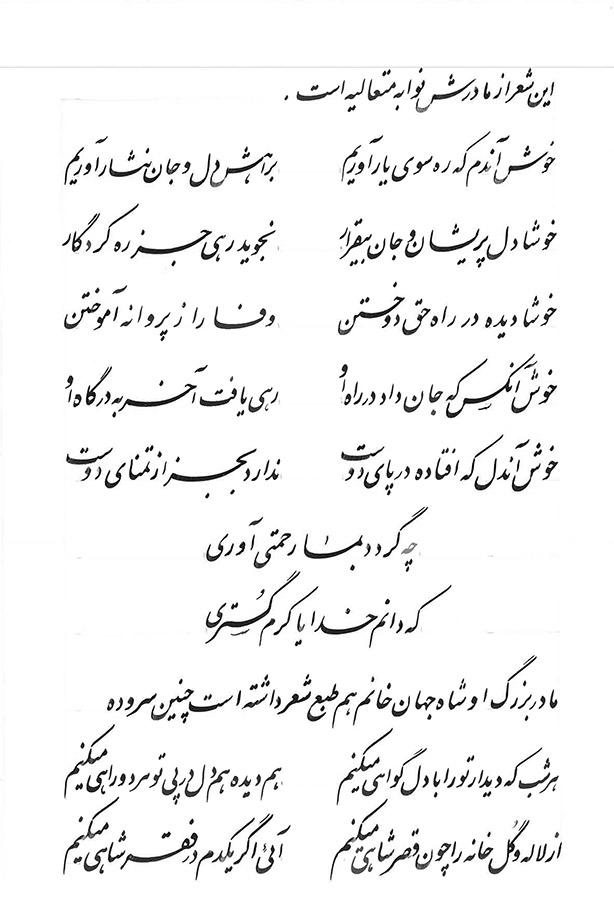 این شعر از مادرش نوابه متعالیه است .
خوش آندم که ره سوی یار آوریم براهش دل و جان نثار آوریم
خوشا دل پریشان و جان بیقرار نجوید رهی جز ره کردگار
خوشا دیده در راه حق دوختن وفا را ز پروانه آموختن
خوش آنکس که جان داد در راه او رهی یافت آخر به درگاه او
خوش آندل که افتاده در پای دوست ندارد بجز از تمنای دوست
چه گردد بما رحمتی آوری
که دانم خدایا کرم گستری
مادر بزرگ او شاه جهان خانم هم طبع شعر داشته است چنین سروده
هر شب که دیدار تو را با دل گواهی میکنیم هم دیده هم دل در پی تو مرد و راهی میکنیم
از لاله و گل خانه را چون قصر شاهی میکنیم آئی اگر یکدم در فقر شاهی میکنیم